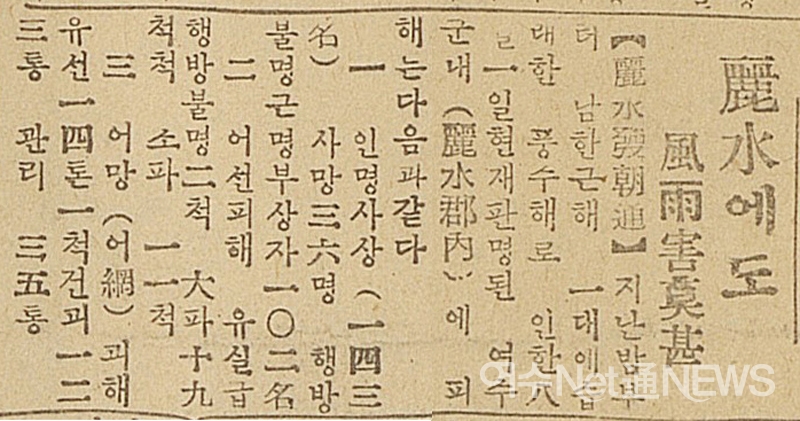 麗水에도
風雨害莫甚
【麗水發朝通】지난밤부
터 남한근해 一대에습
래한 풍수해로 인한八
一일현재판명된 여수
군내(麗水郡內)에 피
해는다음과같다
一 인명사상(一四三
名) 사망三六명 행방
불명근명부상자一〇二名
二 어선피해 유실급
행방불명二척 大파十九
척척 소파 一一척
三 어망(어網)괴해
유선一四톤一척건괴一二
三통 관리 三五통
여수Net通NEWS